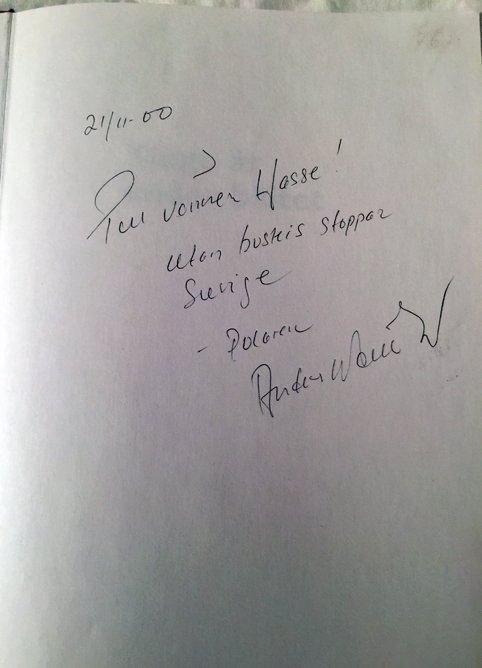 21/11-00
Till vännen Hasse!
utan buskis stoppar
Sverige
- Polaren
Anders